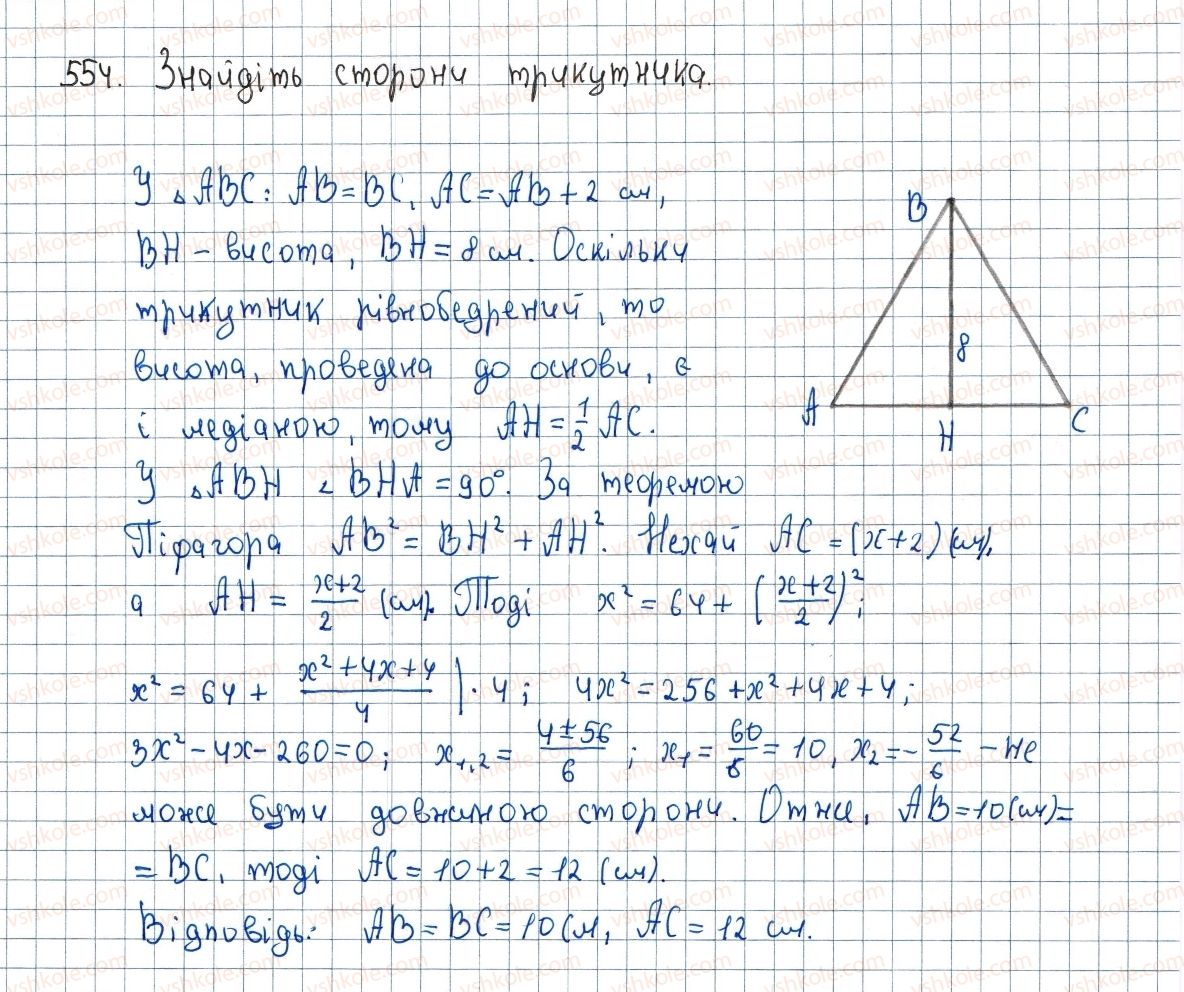 554. Знайдіть сторони трикутника.
У △ABC: AB=BC, AC=AB+2 см,
BH – висота, BH=8 см. Оскільки
трикутник рівнобедрений, то
висота, проведена до основи, є
і медіаною, тому AH=1/2 AC.
У △ABH ∠BHA=90°. За теоремою
Піфагора AB²=BH²+AH². Нехай AC=(x+2)(см),
а AH=(x+2)/2 (см). Тоді x²=64+((x+2)/2)²;
x²=64+(x²+4x+4)/4 |·4; 4x²=256+x²+4x+4;
3x²-4x-260=0; x₁,₂=(4±56)/6; x₁=60/6=10, x₂=-52/6 – не
може бути довжиною сторони. Отже, AB=10(см)=
=BC, тоді AC=10+2=12 (см).
Відповідь: AB=BC=10см, AC=12 см.
B
8
A
H
C
vshkole.com